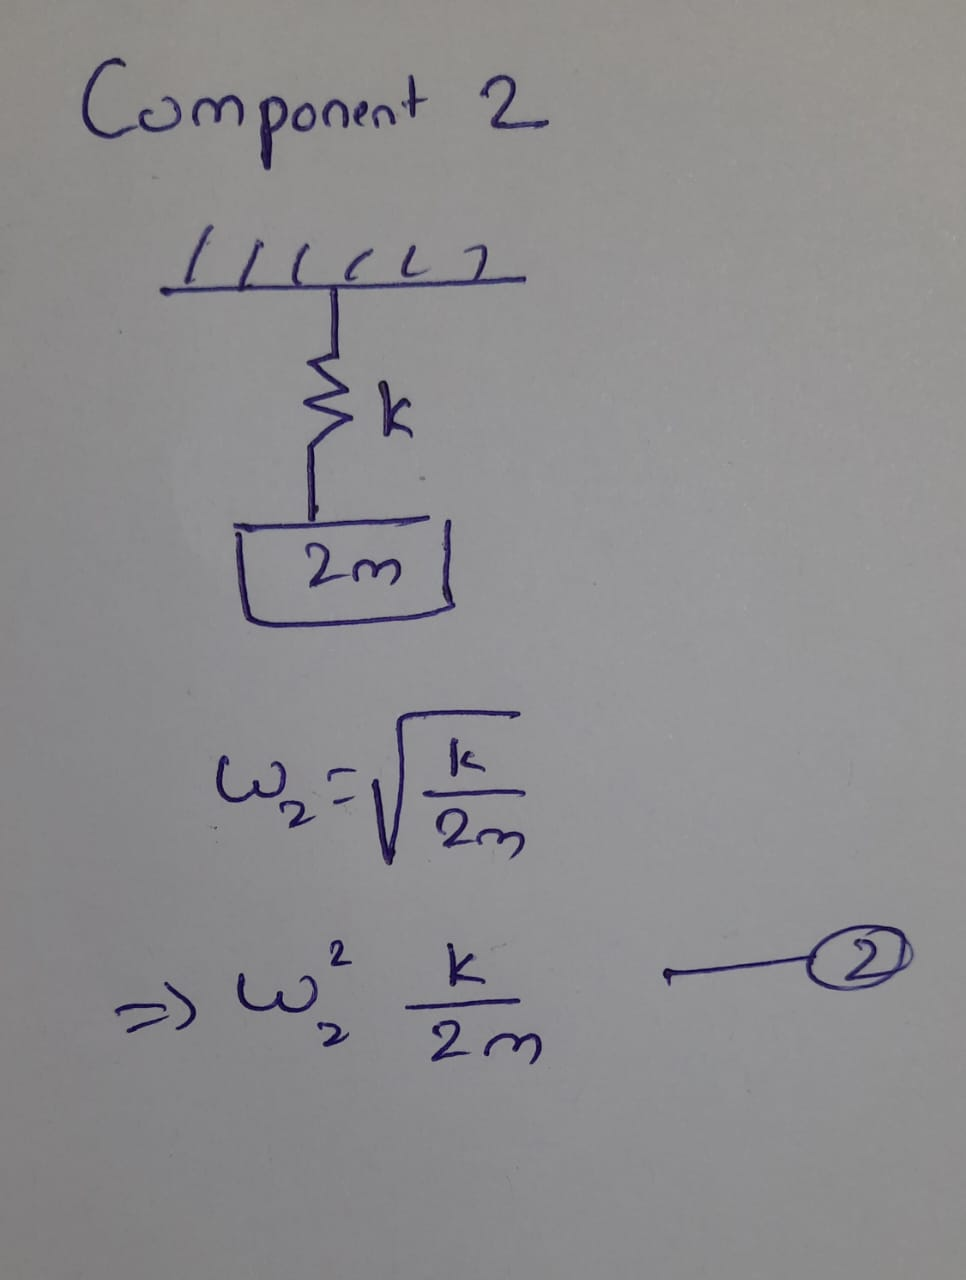 Component 2
k
2m
ω₂ = √(k/2m)
⇒ ω₂² k/2m —②